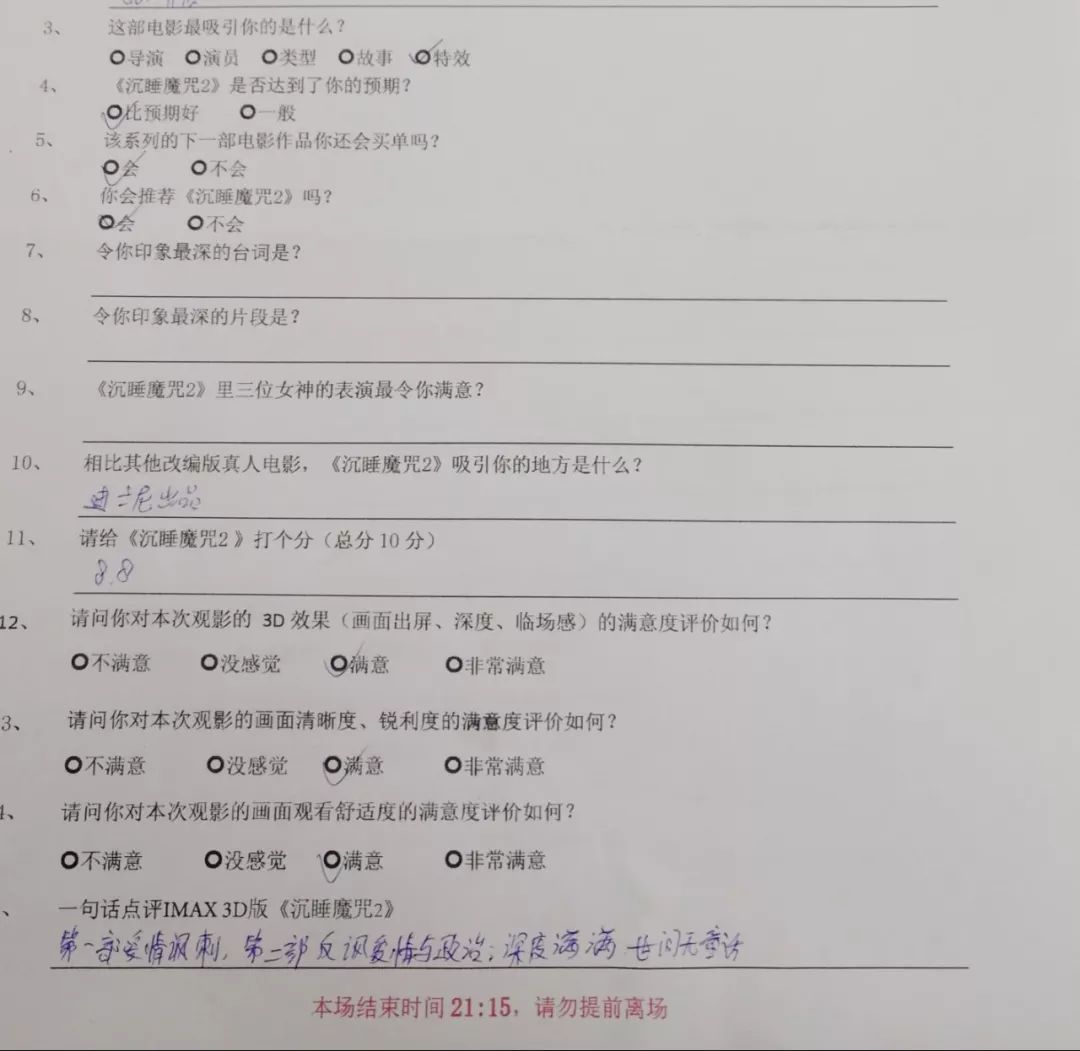 3、 这部电影最吸引你的是什么？
导演 演员 类型 故事 特效
4、 《沉睡魔咒2》是否达到了你的预期？
比预期好 一般
5、 该系列的下一部电影作品你还会买单吗？
会 不会
6、 你会推荐《沉睡魔咒2》吗？
会 不会
7、 令你印象最深的台词是？
8、 令你印象最深的片段是？
9、 《沉睡魔咒2》里三位女神的表演最令你满意？
10、 相比其他改编版真人电影，《沉睡魔咒2》吸引你的地方是什么？
迪士尼出品
11、 请给《沉睡魔咒2 》打个分（总分 10 分）
8.8
12、 请问你对本次观影的 3D 效果（画面出屏、深度、临场感）的满意度评价如何？
不满意 没感觉 满意 非常满意
3、 请问你对本次观影的画面清晰度、锐利度的满意度评价如何？
不满意 没感觉 满意 非常满意
4、 请问你对本次观影的画面观看舒适度的满意度评价如何？
不满意 没感觉 满意 非常满意
、 一句话点评IMAX 3D版《沉睡魔咒2》
第一部爱情讽刺，第二部反讽爱情与政治；深度满满 世间无童话
本场结束时间 21:15，请勿提前离场